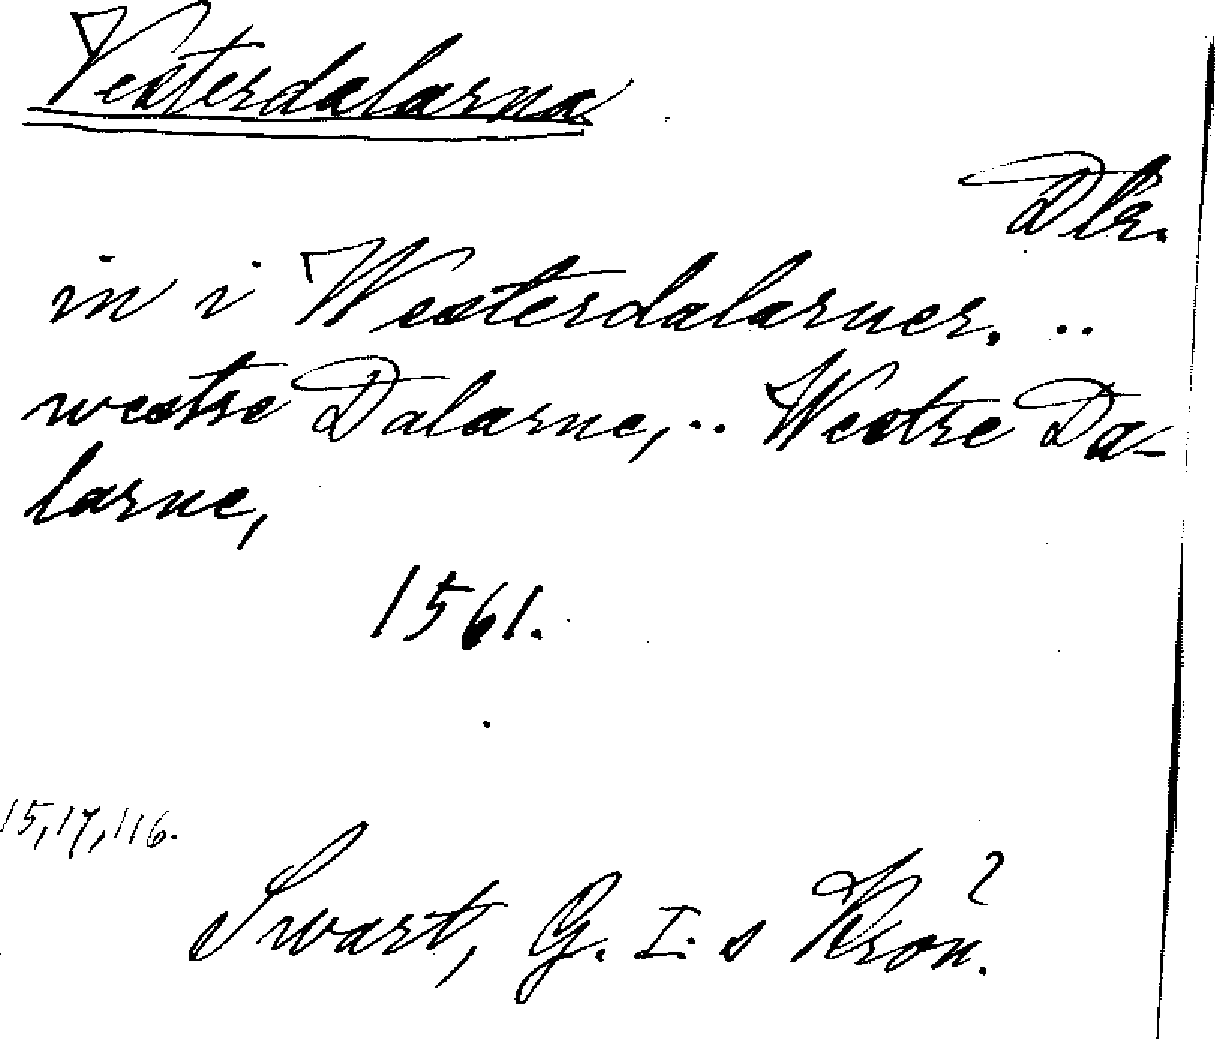 Vesterdalarna
Dlr.
in i Westerdalarner. ..
westre Dalarne, .. Westre Da-
larne,
1561.
15, 17, 116.
Swart, G. I. s Krön.